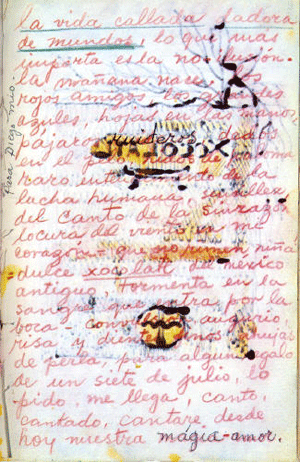 la vida callada dadora
de mundos, lo que más
importa es la no ilusión.
la mañana nace, los
rojos amigos, los grandes
azules, hojas en las manos,
pájaros ruideros, dedos
en el pelo, nidos de paloma
raro entendimiento de la
lucha humana, sencillez
del canto de la sinrazón
locura del viento en mi
corazón = que no rimen niña =
dulce xocolatl del méxico
antiguo, tormenta en la
sangre que entra por la
boca - convulsión, augurio
risa y dientes finos agujas
de perla, para algun regalo
de un siete de julio, lo
pido me llega, canto,
cantado, cantaré desde
hoy nuestra mágia - amor.
Para Diego mio.